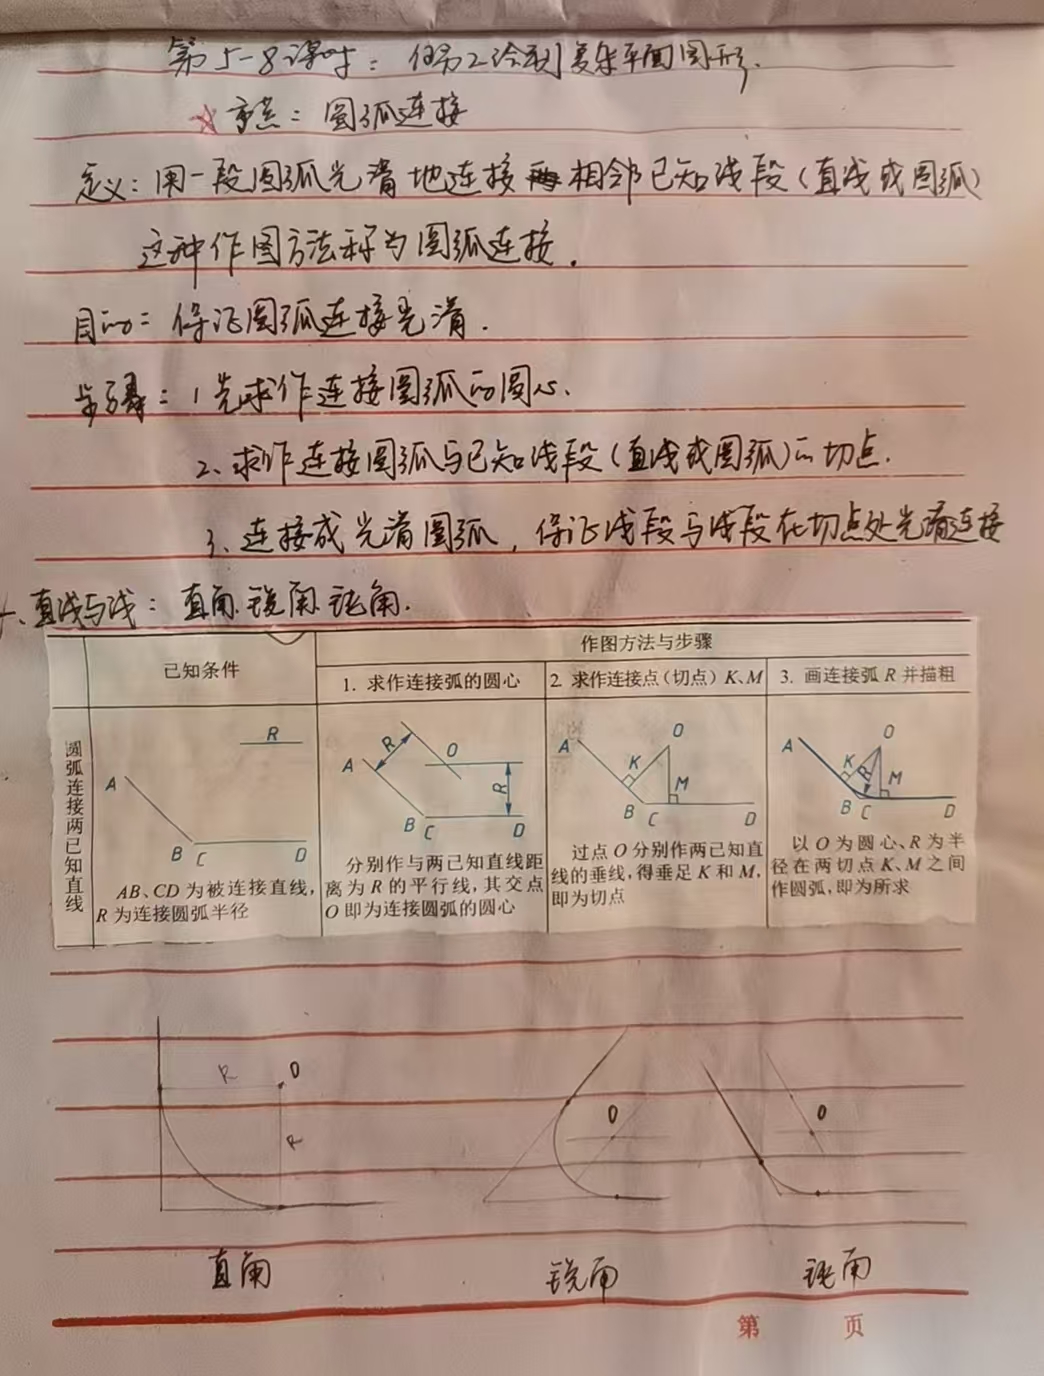 第5-8课时：任务2绘制复杂平面图形.
☆重点：圆弧连接
定义：用一段圆弧光滑地连接相邻已知线段（直线或圆弧）
这种作图方法称为圆弧连接.
目的：保证圆弧连接光滑.
步骤：1先求作连接圆弧的圆心.
2、求作连接圆弧与已知线段（直线或圆弧）的切点.
3、连接成光滑圆弧，保证线段与线段在切点处光滑连接
一、直线与线：直角.锐角.钝角.
已知条件
作图方法与步骤
1. 求作连接弧的圆心
2. 求作连接点（切点）K、M
3. 画连接弧 R 并描粗
圆弧连接两已知直线
R
A
B C D
AB、CD 为被连接直线，
R 为连接圆弧半径
R
O
A
R
B C D
分别作与两已知直线距
离为 R 的平行线，其交点
O 即为连接圆弧的圆心
A
O
K
M
B C D
过点 O 分别作两已知直
线的垂线，得垂足 K 和 M，
即为切点
A
O
K
R
M
B C D
以 O 为圆心、R 为半
径在两切点 K、M 之间
作圆弧，即为所求
R O
R
O
O
直角 锐角 钝角
第 页